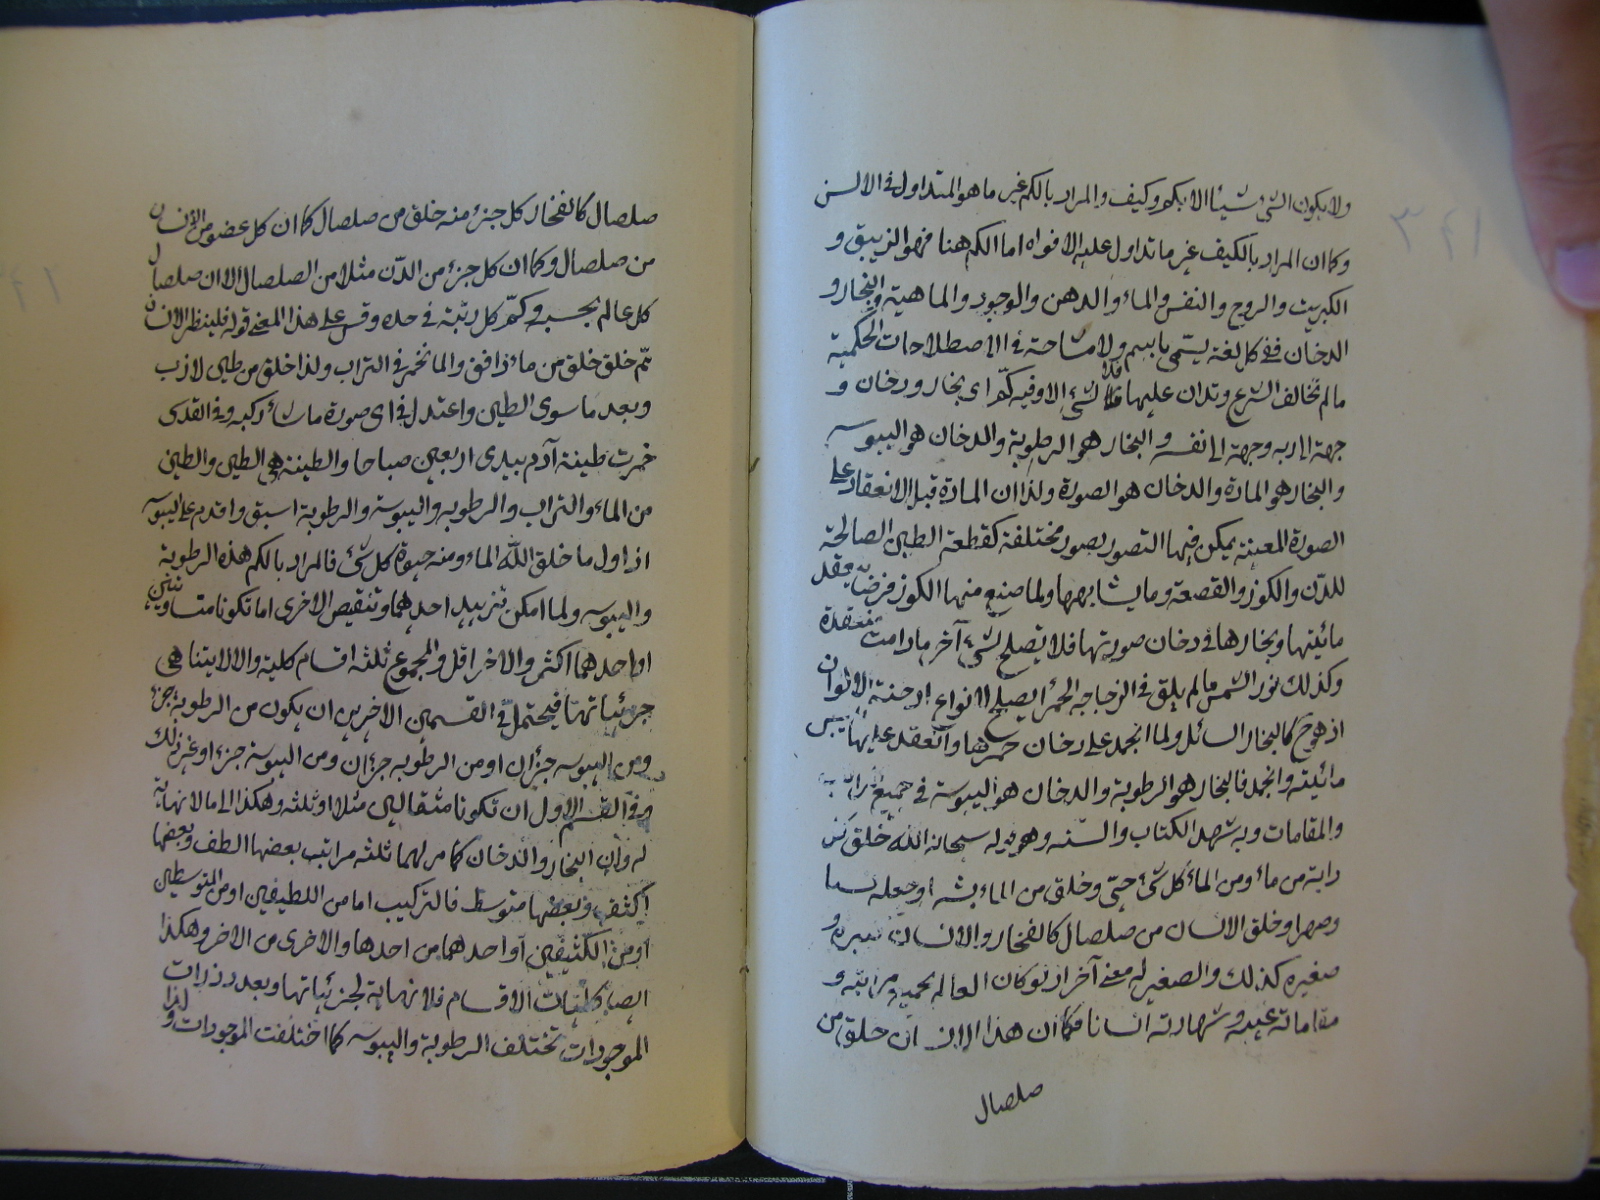 ولا يكون الشئ شيئاً الا بكم وكيف والمراد بالكم غير ما هو المتداول فى الالسن
وكما ان المراد بالكيف غير ما تداول عليه الافواه اما الكم هنا فهو الزيبق و
الكبريت والروح والنفس والماء والدهن والوجود والماهية والبخار و
الدخان ففى كل لغة يسمى باسم ولا مشاحة فى الاصطلاحات الحكمية
ما لم تخالف الشرع وتدان عليها فلا شئ الا وفيه كم اى بخار ودخان و
جهة الى ربه وجهة الى نفسه والبخار هو الرطوبة والدخان هو اليبوسه
والبخار هو المادة والدخان هو الصورة ولذا ان المادة قبل الانعقاد على
الصورة المعينة يمكن فيها التصور بصور مختلفة كقطعة الطين الصالحة
للدّن والكوز والقصعة وما يشابهها ولما صنع منها الكوز فرضاً يعقد
مائيتها وبخارها فى دخان صورتها فلا يصلح لشئ آخر ما دامت منعقدة
وكذلك نور الشمس ما لم يلق فى الزجاجه الحمراء يصلح لانواع ادخنة الالوان
اذ هو ح كالبخار السائل ولما انجمد على دخان حمرها وانعقد عليها يبس
مائيته وانجمد فالبخار هو الرطوبة والدخان هو اليبوسة فى جميع
والمقامات وبه شهد الكتاب والسّنه وهو قوله سبحانه الله خلق كل
دابة من ماء ومن الماء كل شئ حىّ وخلق من الماء بشرا وجعله نسبا
وصهرا وخلق الانسان من صلصال كالفخار والانسان كبيره و
صغيره كذلك والصغير له معنى آخر اذ لو كان العالم بجميع مراتبه و
مقاماته غيبه وشهادته انسانا فكما ان هذا الانسان خلق من
صلصال
صلصال كالفخار كل جزء منه خلق من صلصال كما ان كل عضو من الانسان
من صلصال وكما ان كل جزء من الدّن مثلا من الصلصال الا ان صلصال
كل عالم بحسبه وكمّ كل رتبة فى حده وقس على هذا المعنى قوله فلينظر الانسان
ممّ خلق خلق من ماء دافق والماء تخمر فى التراب ولذا خلق من طين لازب
وبعد ما سوى الطين واعتدل فى اى صورة ما شاء ركبه وفى القدسى
خمرت طينة آدم بيدى اربعين صباحا والطينة هى الطين والطين
من الماء والتراب والرطوبه واليبوسة والرطوبة اسبق واقدم على اليبوسه
اذ اول ما خلق الله الماء ومنه حيوة كل شئ فالمراد بالكم هذه الرطوبة
واليبوسه ولما امكن تزييد احدهما وتنقيص الاخرى اما تكونا متساويتين
او احدهما اكثر والاخر اقل والمجموع ثلثة اقسام كلية والا لا يتناهى
جزئياتها فيحتمل فى القسمين الاخرين ان يكون من الرطوبة جزء
ومن اليبوسه جزءان او من الرطوبه جزءان ومن اليبوسة جزء او غير ذلك
وفى القسم الاول ان تكونا مثقالين مثلا او ثلثه وهكذا الى ما لا نهاية
له وان البخار والدخان كما مر لهما ثلثه مراتب بعضها الطف وبعضها
اكثف وبعضها متوسط فالتركيب اما من اللطيفين او من المتوسطين
او من الكثيفين او احدهما من احدها والاخرى من الاخر وهكذا
ايضا كليات الاقسام فلا نهاية لجزئياتها وبعدد ذرات
الموجودات تختلف الرطوبة واليبوسه كما اختلفت الموجودات ولذا